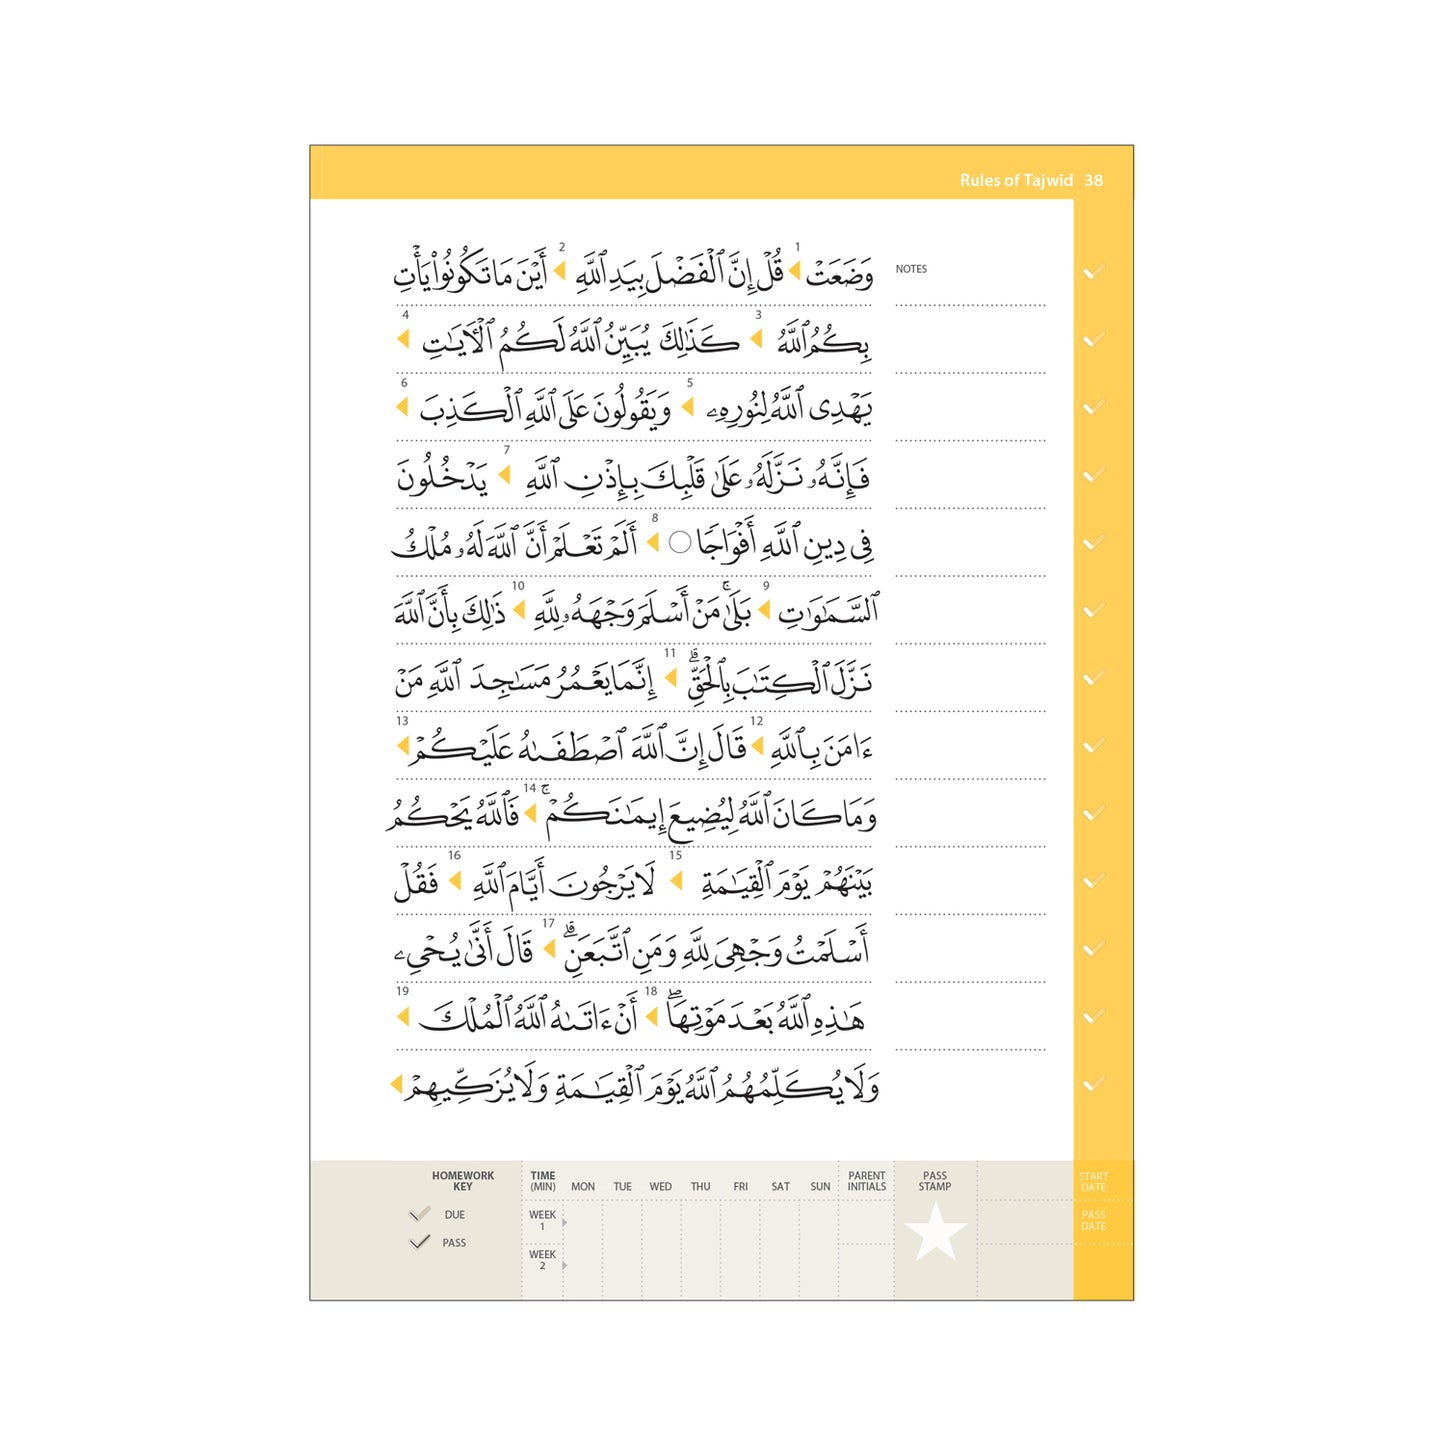 Rules of Tajwid 38
NOTES
وَضَعَتْ ◀ 1 قُلْ إِنَّ ٱلْفَضْلَ بِيَدِ ٱللَّهِ ◀ 2 أَيْنَ مَا تَكُونُوا۟ يَأْتِ
بِكُمُ ٱللَّهُ ◀ 3 كَذَٰلِكَ يُبَيِّنُ ٱللَّهُ لَكُمُ ٱلْـَٔايَـٰتِ ◀ 4
يَهْدِى ٱللَّهُ لِنُورِهِۦ ◀ 5 وَيَقُولُونَ عَلَى ٱللَّهِ ٱلْكَذِبَ ◀ 6
فَإِنَّهُۥ نَزَّلَهُۥ عَلَىٰ قَلْبِكَ بِإِذْنِ ٱللَّهِ ◀ 7 يَدْخُلُونَ
فِى دِينِ ٱللَّهِ أَفْوَاجًا ○ ◀ 8 أَلَمْ تَعْلَمْ أَنَّ ٱللَّهَ لَهُۥ مُلْكُ
ٱلسَّمَـٰوَٰتِ ◀ 9 بَلَىٰ ۚ مَنْ أَسْلَمَ وَجْهَهُۥ لِلَّهِ ◀ 10 ذَٰلِكَ بِأَنَّ ٱللَّهَ
نَزَّلَ ٱلْكِتَـٰبَ بِٱلْحَقِّ ۗ ◀ 11 إِنَّمَا يَعْمُرُ مَسَـٰجِدَ ٱللَّهِ مَنْ
ءَامَنَ بِٱللَّهِ ◀ 12 قَالَ إِنَّ ٱللَّهَ ٱصْطَفَىٰهُ عَلَيْكُمْ ◀ 13
وَمَا كَانَ ٱللَّهُ لِيُضِيعَ إِيمَـٰنَكُمْ ۚ ◀ 14 فَٱللَّهُ يَحْكُمُ
بَيْنَهُمْ يَوْمَ ٱلْقِيَـٰمَةِ ◀ 15 لَا يَرْجُونَ أَيَّامَ ٱللَّهِ ◀ 16 فَقُلْ
أَسْلَمْتُ وَجْهِىَ لِلَّهِ وَمَنِ ٱتَّبَعَنِ ۗ ◀ 17 قَالَ أَنَّىٰ يُحْىِۦ
هَـٰذِهِ ٱللَّهُ بَعْدَ مَوْتِهَا ۖ ◀ 18 أَنْ ءَاتَىٰهُ ٱللَّهُ ٱلْمُلْكَ ◀ 19
وَلَا يُكَلِّمُهُمُ ٱللَّهُ يَوْمَ ٱلْقِيَـٰمَةِ وَلَا يُزَكِّيهِمْ ◀
HOMEWORK KEY
DUE
PASS
TIME (MIN) MON TUE WED THU FRI SAT SUN PARENT INITIALS PASS STAMP START DATE
WEEK 1 PASS DATE
WEEK 2